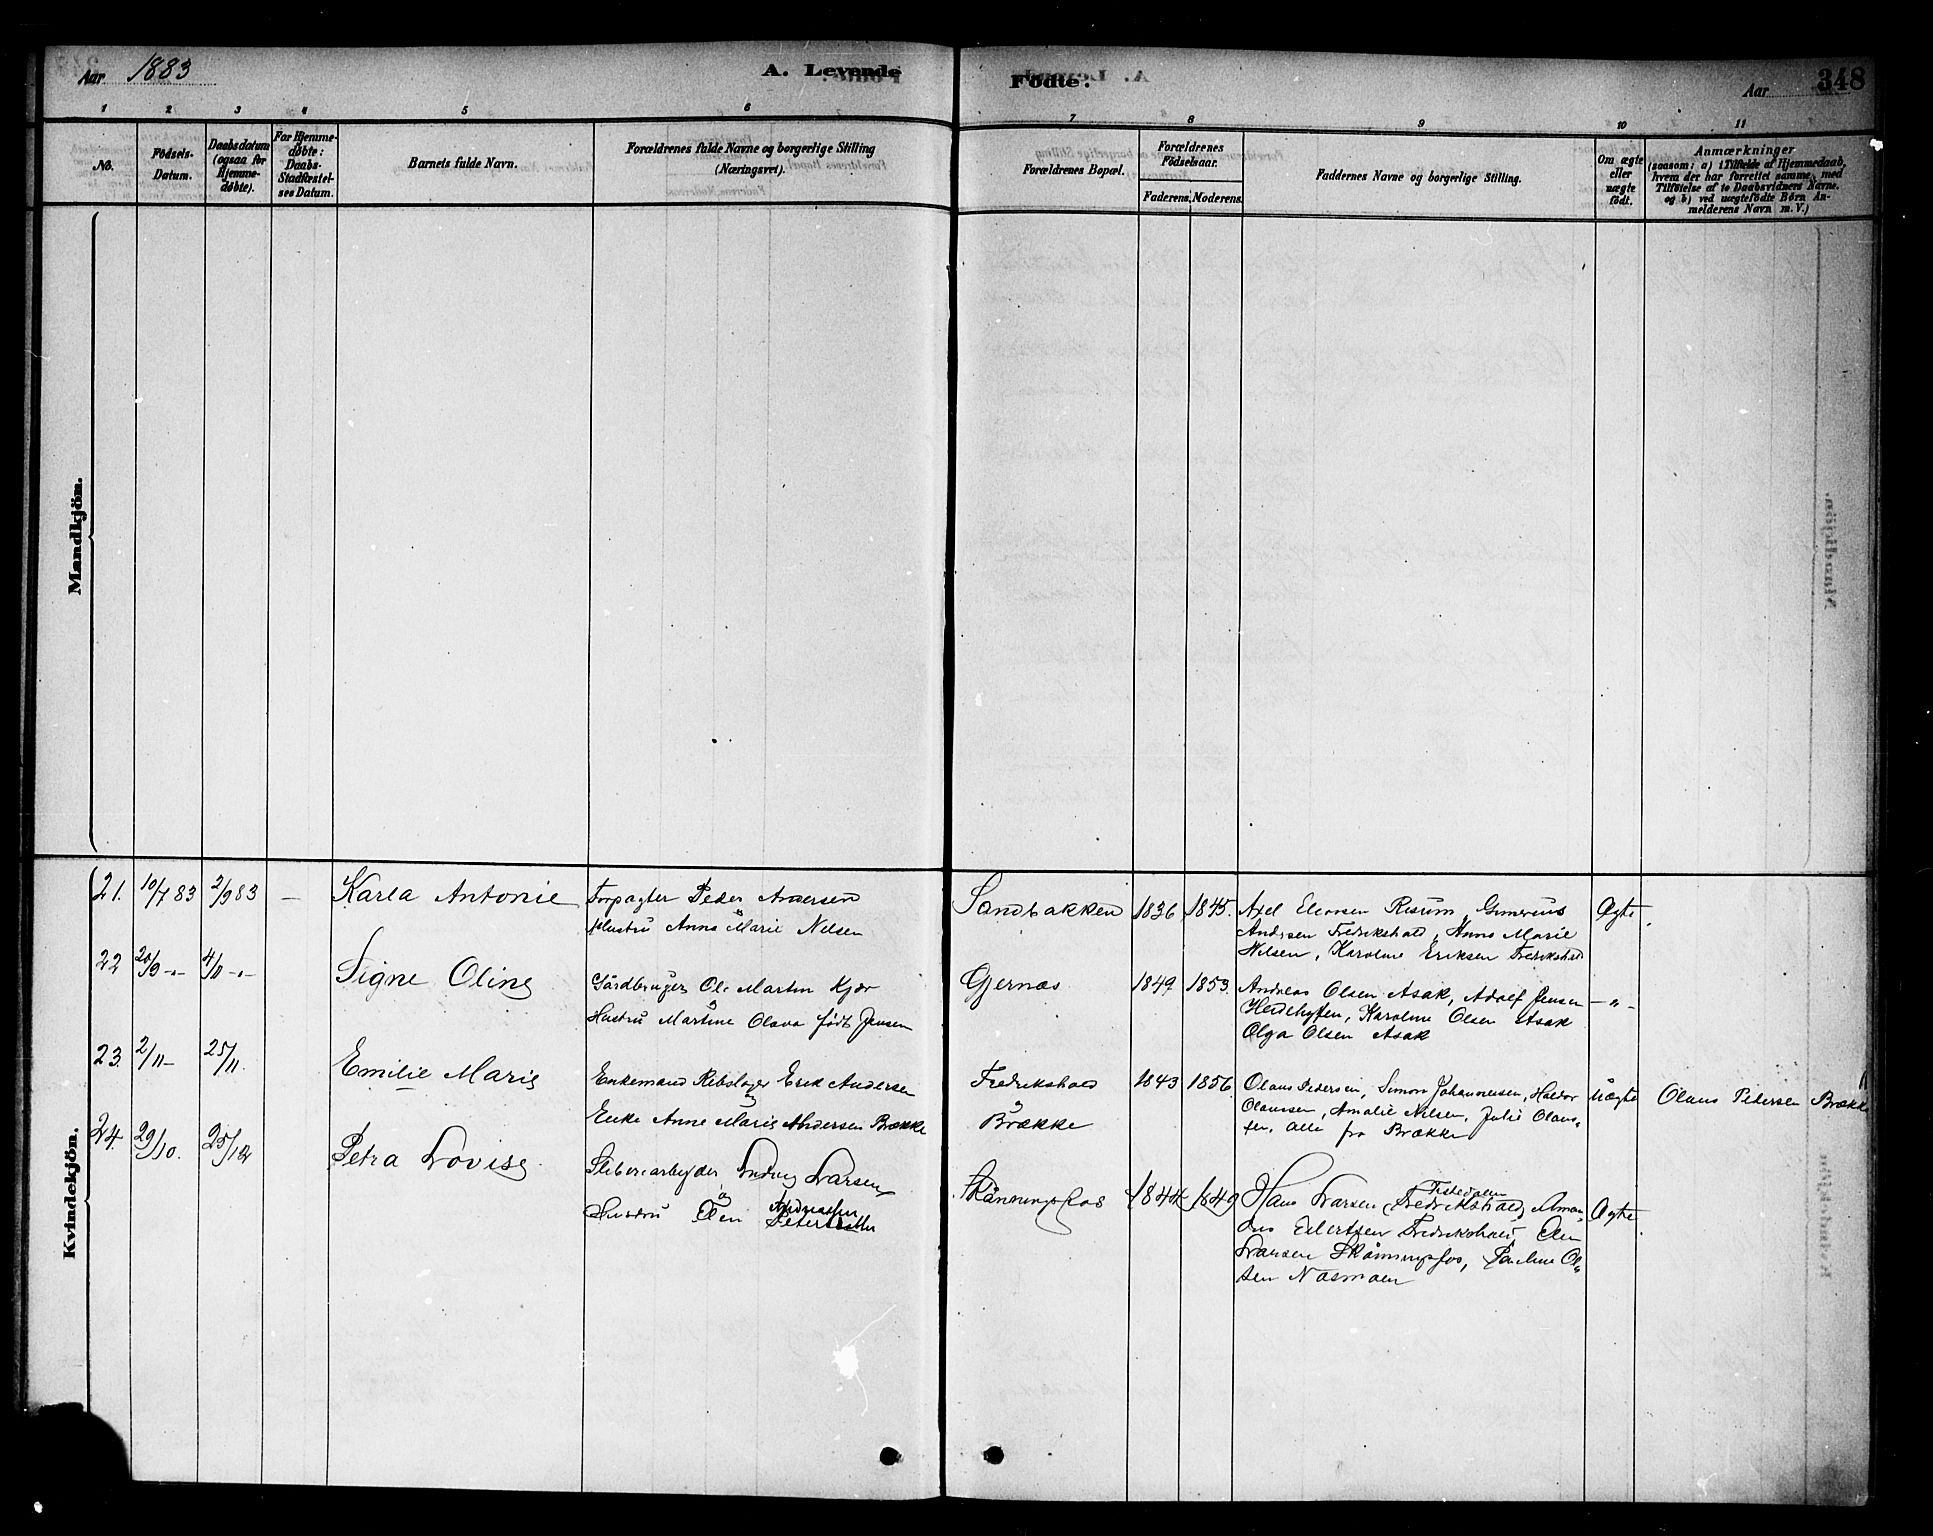 Aar 1883
A. Levende
Fødte.
Aar
348
1 2 3 4 5 6 7 8 9 10 11
No.
Födsels-
Datum.
Daabsdatum
(ogsaa for
Hjemme-
døbte).
For Hjemme-
døbte:
Daabs-
Stadfæstel-
ses Datum.
Barnets fulde Navn.
Forældrenes fulde Navne og borgerlige Stilling
(Næringsvei).
Forældrenes Bopæl.
Forældrenes
Fødselsaar.
Faderens. Moderens.
Faddernes Navne og borgerlige Stilling.
Om ægte
eller
uægte
født.
Anmærkninger
(saasom: a) i Tilfælde af Hjemmedaab,
hvem der har forrettet samme, med
Tilføielse af to Daabsvidners Navne.
og b) ved uægtefødte Børn An-
melderens Navn m. V.)
Mandkjön.
Kvindekjön.
21. 10/7 83 2/9 83 — Karla Antonie
Forpagter Peder Andersen
Hustru Anna Marie Nilsen
Sandbakken 1836 1845.
Axel Elensen Risum, Gunerius
Andersen Fredrikshald, Anna Marie
Nilsen, Karoline Eriksen Fredrikshald
Ægte
22 20/9 -"- 4/11 -"- Signe Oline
Gårdbruger Ole Martin Kjær
Hustru Martine Olava født Jensen
Gjernæs 1849 1853.
Andreas Olsen Asak, Adolf Jensen
Karoline Olsen Asak
Olga Olsen Asak
—"—
23. 2/11 - 25/11. Emilie Marie
Enkemand Rebslager Erik Andersen
Enke Anne Marie Andersen Brække
Fredrikshald
Brække
1843 1856
Olaus Pedersen, Simon Johannesen, Haldor
Olaussen, Amalie Nilsen, Julie Olaus-
sen, alle fra Brække
Uægte
Olaus Pedersen Brække
24. 29/10. 25/12 Petra Lovise
Sliberiarbejder Ludvig Larsen
Hustru Elen Andreassen
Skånningsfos 1844 1849
Hans Larsen Tistedalen Fredrikshald, Aman-
dus Eilertsen Fredrikshald, Elen
Larsen Skånningsfos, Pauline Ol-
sen Næsmoen
Ægte